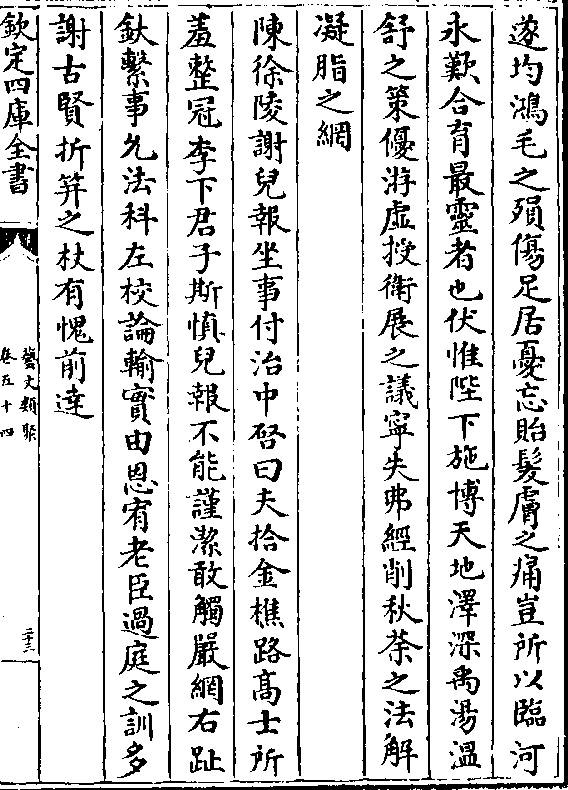 遂均鴻毛之殞傷足居憂忘貽髮膚之痛豈所以臨河
永歎合育最靈者也伏惟陛下施博天地澤深禹湯溫
舒之策優游虛授衛展之議寧失弗經削秋荼之法解
凝脂之網
陳徐陵謝兒報坐事付治中啓曰夫拾金樵路高士所
羞整冠李下君子斯慎兒報不能謹潔敢觸嚴網右趾
鈦繫事允法科左校論輸實由恩宥老臣過庭之訓多
謝古賢折笄之杖有愧前達
欽定四庫全書
藝文類聚
卷五十四
二十三